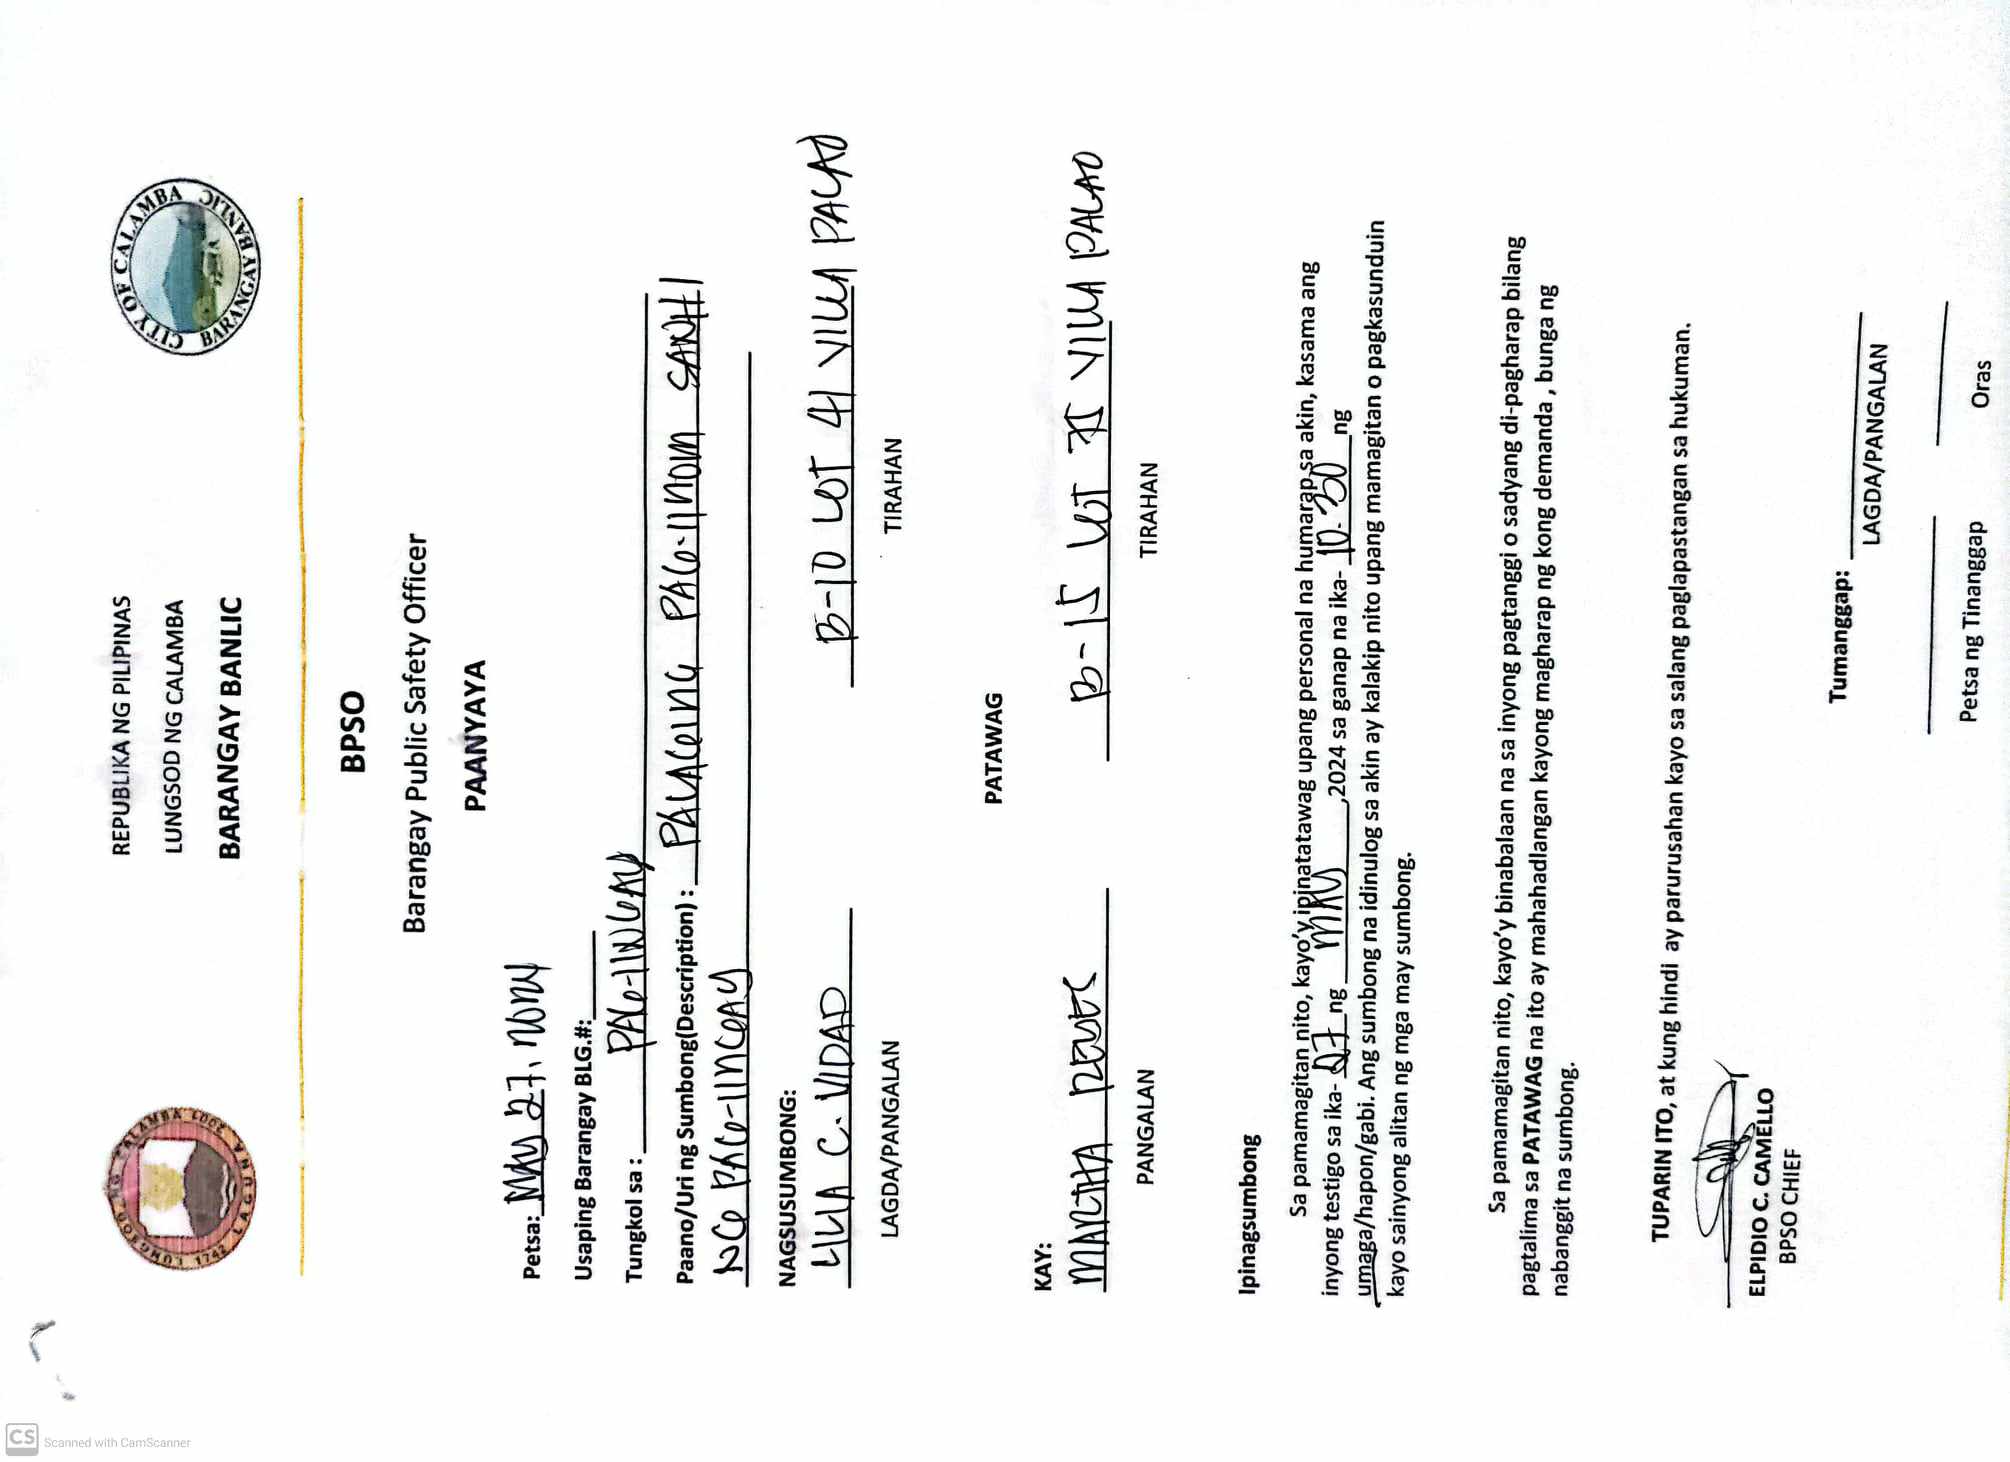 REPUBLIKA NG PILIPINAS
LUNGSOD NG CALAMBA
BARANGAY BANLIC
LUNGSOD NG CALAMBA 2001 LAGUNA 1742
CITY OF CALAMBA
BARANGAY BANLIC
BPSO
Barangay Public Safety Officer
PAANYAYA
Petsa: MAY 27,
Usaping Barangay BLG.#:
Tungkol sa : PAG-IINGAY
Paano/Uri ng Sumbong(Description) : PALAGING PAG-IINOM SANHI
NG PAG-IINGAY
NAGSUSUMBONG:
LILIA C. VIDAD B-10 LOT 41 VILLA PALAO
LAGDA/PANGALAN TIRAHAN
PATAWAG
KAY:
REYES B-15 LOT VILLA PALAO
PANGALAN TIRAHAN
Ipinagsumbong
Sa pamamagitan nito, kayo'y ipinatatawag upang personal na humarap sa akin, kasama ang
inyong testigo sa ika- 27 ng MAY ,2024 sa ganap na ika- 10-30 ng
umaga/hapon/gabi. Ang sumbong na idinulog sa akin ay kalakip nito upang mamagitan o pagkasunduin
kayo sainyong alitan ng mga may sumbong.
Sa pamamagitan nito, kayo'y binabalaan na sa inyong pagtanggi o sadyang di-pagharap bilang
pagtalima sa PATAWAG na ito ay mahahadlangan kayong magharap ng kong demanda , bunga ng
nabanggit na sumbong.
TUPARIN ITO, at kung hindi ay parurusahan kayo sa salang paglapastangan sa hukuman.
ELPIDIO C. CAMELLO
BPSO CHIEF
Tumanggap:
LAGDA/PANGALAN
Petsa ng Tinanggap Oras
CS Scanned with CamScanner